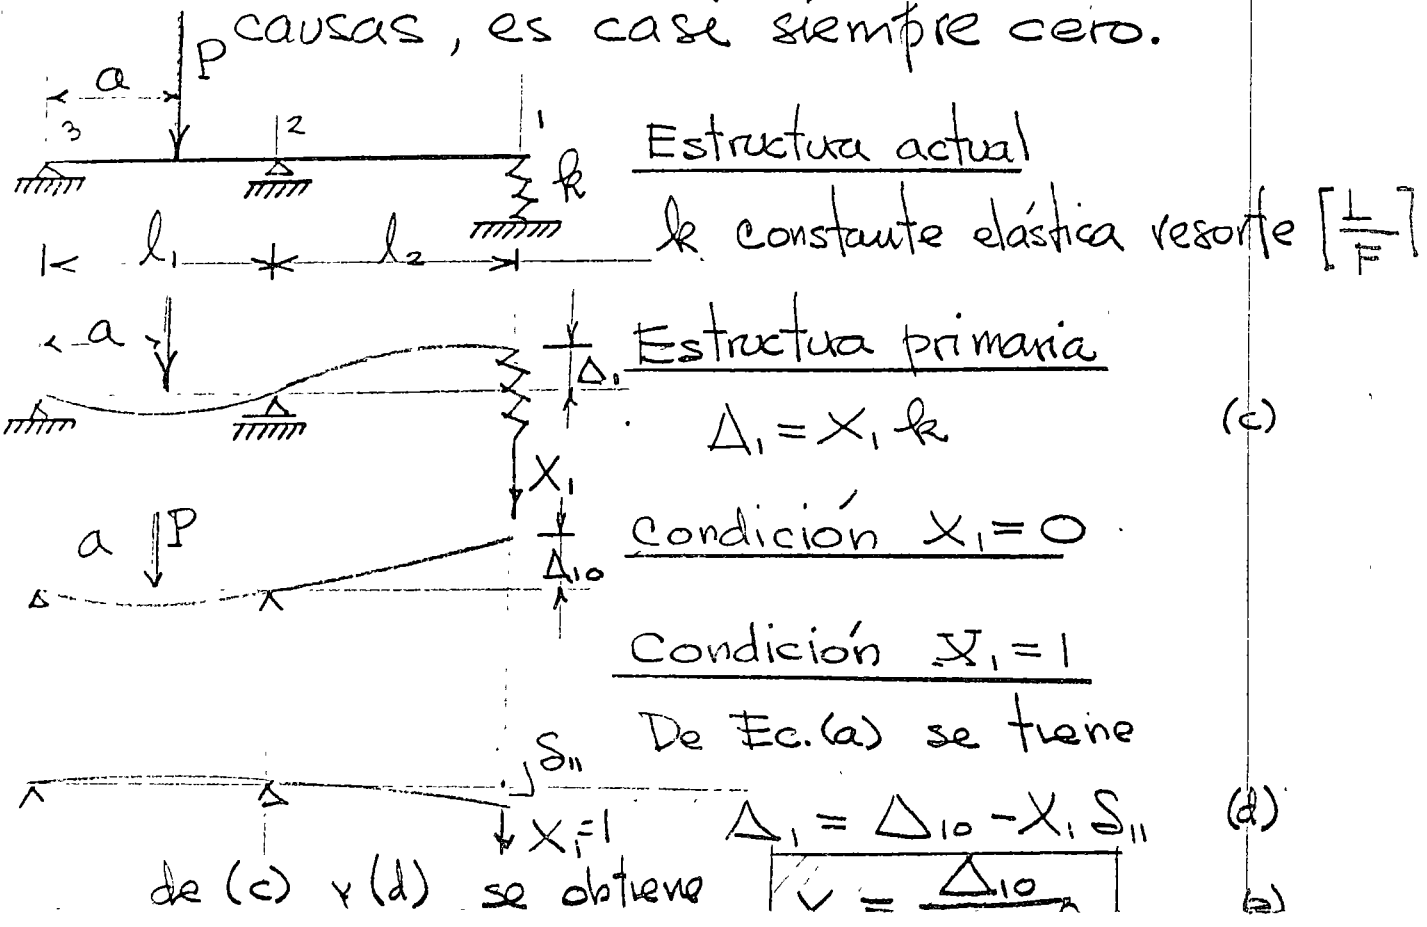 causas, es casi siempre cero.
P
a
3 2 1
Estructura actual
k
k constante elástica resorte [L/F]
l₁ l₂
a
Estructura primaria
Δ₁
Δ₁ = X₁ k (c)
X₁
a P
Condición X₁ = 0
Δ₁₀
Condición X₁ = 1
De Ec.(a) se tiene
δ₁₁
Δ₁ = Δ₁₀ - X₁ δ₁₁ (d)
X₁=1
de (c) y (d) se obtiene
= Δ₁₀